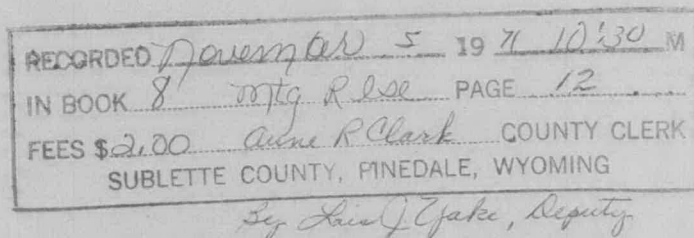 RECORDED November 5 19 71 10:30 M
IN BOOK 8 Mtg Rlse PAGE 12
FEES $2.00 Anne R Clark COUNTY CLERK
SUBLETTE COUNTY, PINEDALE, WYOMING
By Lois J , Deputy